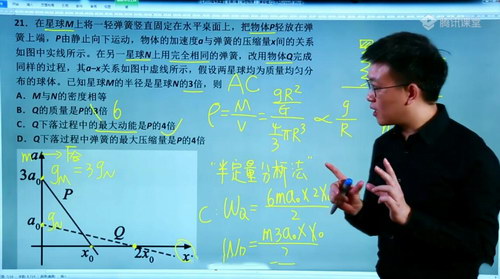 腾讯课堂
21. 在星球M上将一轻弹簧竖直固定在水平桌面上，把物体P轻放在弹
簧上端，P由静止向下运动，物体的加速度a与弹簧的压缩量x间的关系
如图中实线所示。在另一星球N上用完全相同的弹簧，改用物体Q完成
同样的过程，其a-x关系如图中虚线所示，假设两星球均为质量均匀分
布的球体。已知星球M的半径是星球N的3倍，则 AC
A．M与N的密度相等
B．Q的质量是P的3倍 6
C．Q下落过程中的最大动能是P的4倍
D．Q下落过程中弹簧的最大压缩量是P的4倍
ρ = M/V = (gR²/G)/(4/3 πR³) ∝ g/R
a
3a₀
gM = 3gN
P
a₀
gN
Q
O
x₀
2x₀
x
"半定量分析法"
C: WQ = 6ma₀×2x₀/2
m3a₀×x₀/2